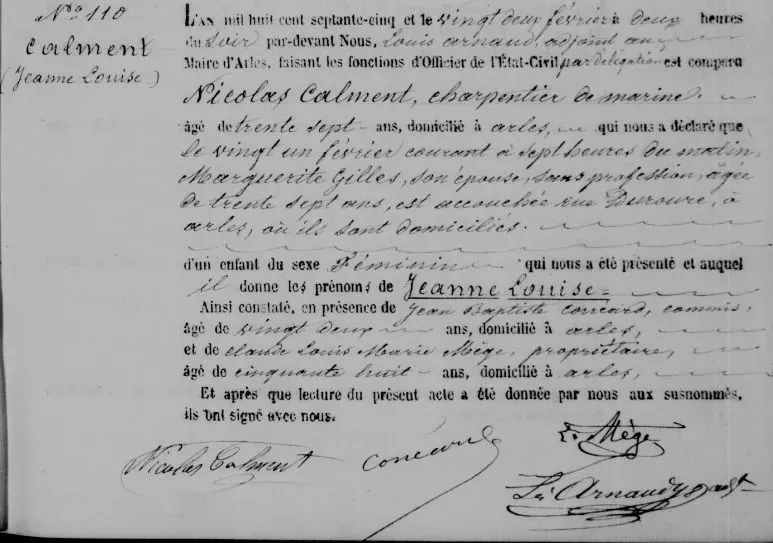 N° 110
Calment
(Jeanne Louise)
L'AN mil huit cent septante-cinq et le vingt deux février à deux heures
du soir par-devant Nous, Louis arnaud, adjoint au
Maire d'Arles, faisant les fonctions d'Officier de l'État-Civil par délégation est comparu
Nicolas Calment, charpentier de marine.
âgé de trente sept ans, domicilié à arles, qui nous a déclaré que
le vingt un février courant à sept heures du matin,
Marguerite Gilles, son épouse, sans profession, âgée
de trente sept ans, est accouchée rue Duroure, à
arles, où ils sont domiciliés.
d'un enfant du sexe Féminin qui nous a été présenté et auquel
il donne les prénoms de Jeanne Louise
Ainsi constaté, en présence de Jean Baptiste corréard, commis,
âgé de vingt deux ans, domicilié à arles,
et de claude Louis Marie Mège, propriétaire,
âgé de cinquante huit ans, domicilié à arles,
Et après que lecture du présent acte a été donnée par nous aux susnommés,
ils ont signé avec nous.
Mège
Nicolas Calment
Arnaud